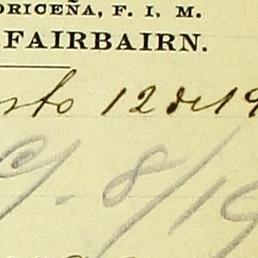 ORICEÑA, F. I. M.
FAIRBAIRN.
sto 12 de 19
8/19